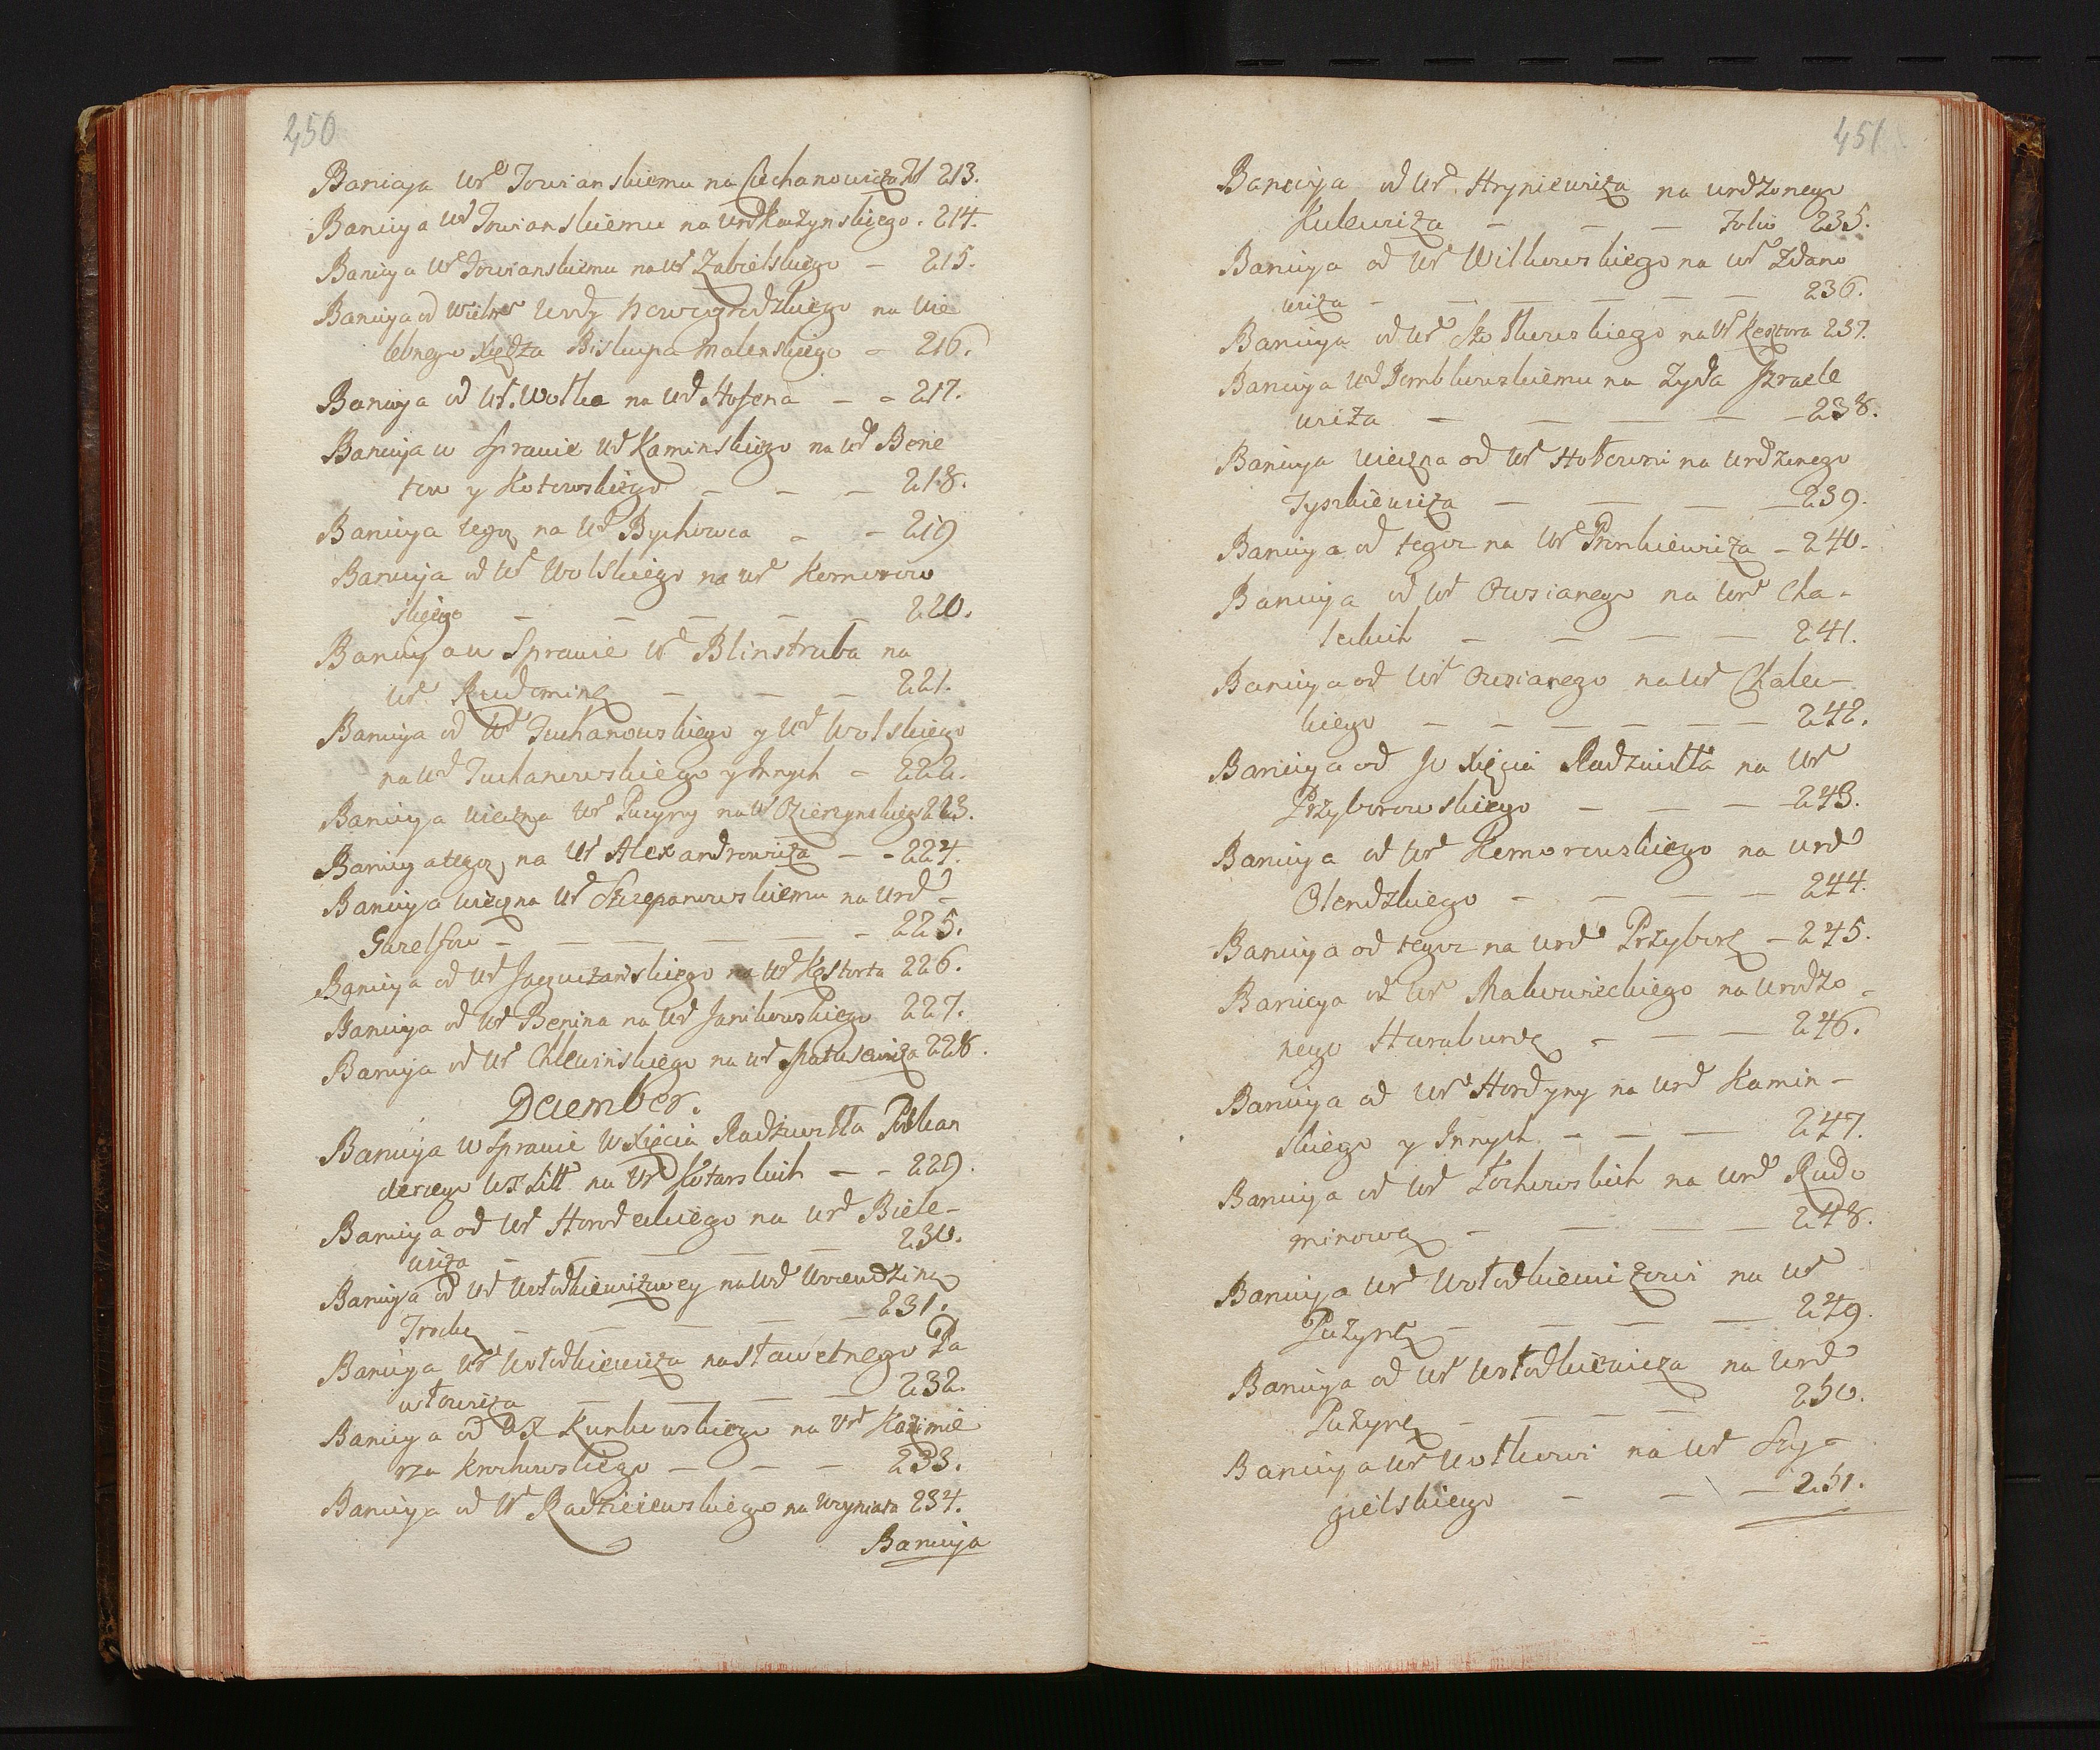 450
Banicya Ur Towianskiemu na Ciechanowicza 213.
Banicya Ur Towianskiemu na Urd Każynskiego. 214.
Banicya Ur Towianskiemu na Ur Zabielskiego – 215.
Banicya od Wielm Urody Nowogrodzkiego na Wie
lebnego Xiędza Biskupa Smolenskiego – 216.
Banicya od Ur. Wołka na Urd Hofena – – 217.
Banicya w Sprawie Ud Kaminskiego na Ud Bene
tow y Kotowskiego – – – 218.
Banicya tegoz na Ur Bychowca – – 219
Banicya od Ur Wolskiego na Ur Komorow
skiego – – – – – 220.
Banicya w Sprawie Ur Blinstruba na
Ur. Rudominę – – – 221.
Banicya od Ur Juchanowskiego y Ur Wolskiego
na Ud Juchanowskiego y Innych – 222.
Banicya wieczna Ur Pucyny na Ur Ozierzynskiego 223.
Banicya tegoz na Ur Alexandrowicza – – 224.
Banicya wieczna Ur Szczepanowskiemu na Urd –
Gurelfow – – – – – 225.
Banicya od Ud Jaguczanskiego na Ud Kosturta 226.
Banicya od Ud Benina na Ud Janikowskiego 227.
Banicya od Ur Chlewinskiego na Ur Matusewicza 228.
December.
Banicya w Sprawie W Xięcia Radziwiłła Podkan
clerzego WX Litt na Ur Kotarskich – – 229.
Banicya od Ur Horodeckiego na Urd Biele–
wicza – – – – 230.
Banicya od Ud Wołodkiewiczowey na Urd Woiewodzinę
Trocką – – – – – 231.
Banicya Ur Wołodkiewicza na sławetnego Pa
włowicza – – – – 232.
Banicya od DX Kunkowskiego na Ur Kazimie
rza Krochowskiego – – – 233.
Banicya od Ur Radzieiewskiego na Uczyniata 234.
Banicya
451
Banicya od Urd. Hryniewicza na urodzonego
Kulewicza – – – Folio 235.
Banicya od Ur Wilkowskiego na Ur Zdano
wicza – – – – – – 236.
Banicya od Ur Szostkowskiego na Ur Kęsztora 237.
Banicya Ud Dembkowskiemu na Zyda Izraele
wicza – – – – – 238.
Banicya wieczna od Ur Hołowni na Urodzonego
Tyszkiewicza – – – – 239.
Banicya od tegoz na Ur Pronkiewicza – 240.
Banicya od Ur Owsianego na Urd Cha–
leckich – – – – 241.
Banicya od Ur Owsianego na Ur Chalec–
kiego – – – – – – 242.
Banicya od Jo Xięcia Radziwiłła na Ur
Przyborowskiego – – – 243.
Banicya od Urd Komorowskiego na Urd
Olendzkiego – – – – 244.
Banicya od tegoz na Urd Przyborę – 245.
Banicya od Ur Makowieckiego na Urodzo –
nego Haraburdę – – – 246.
Banicya od Ur Hordyny na Urd Kamin–
skiego y Innych – – – 247.
Banicya od Ur Łochowskich na Urd Rudo
minową – – – – 248.
Banicya Urd Wołodkiewiczowi na Ur
Puzynę – – – – 249.
Banicya od Ur Wołodkiewicza na Urd
Puzynę – – – – 250.
Banicya Ur Wołkowi na Ur Szy–
gielskiego – – – 251.